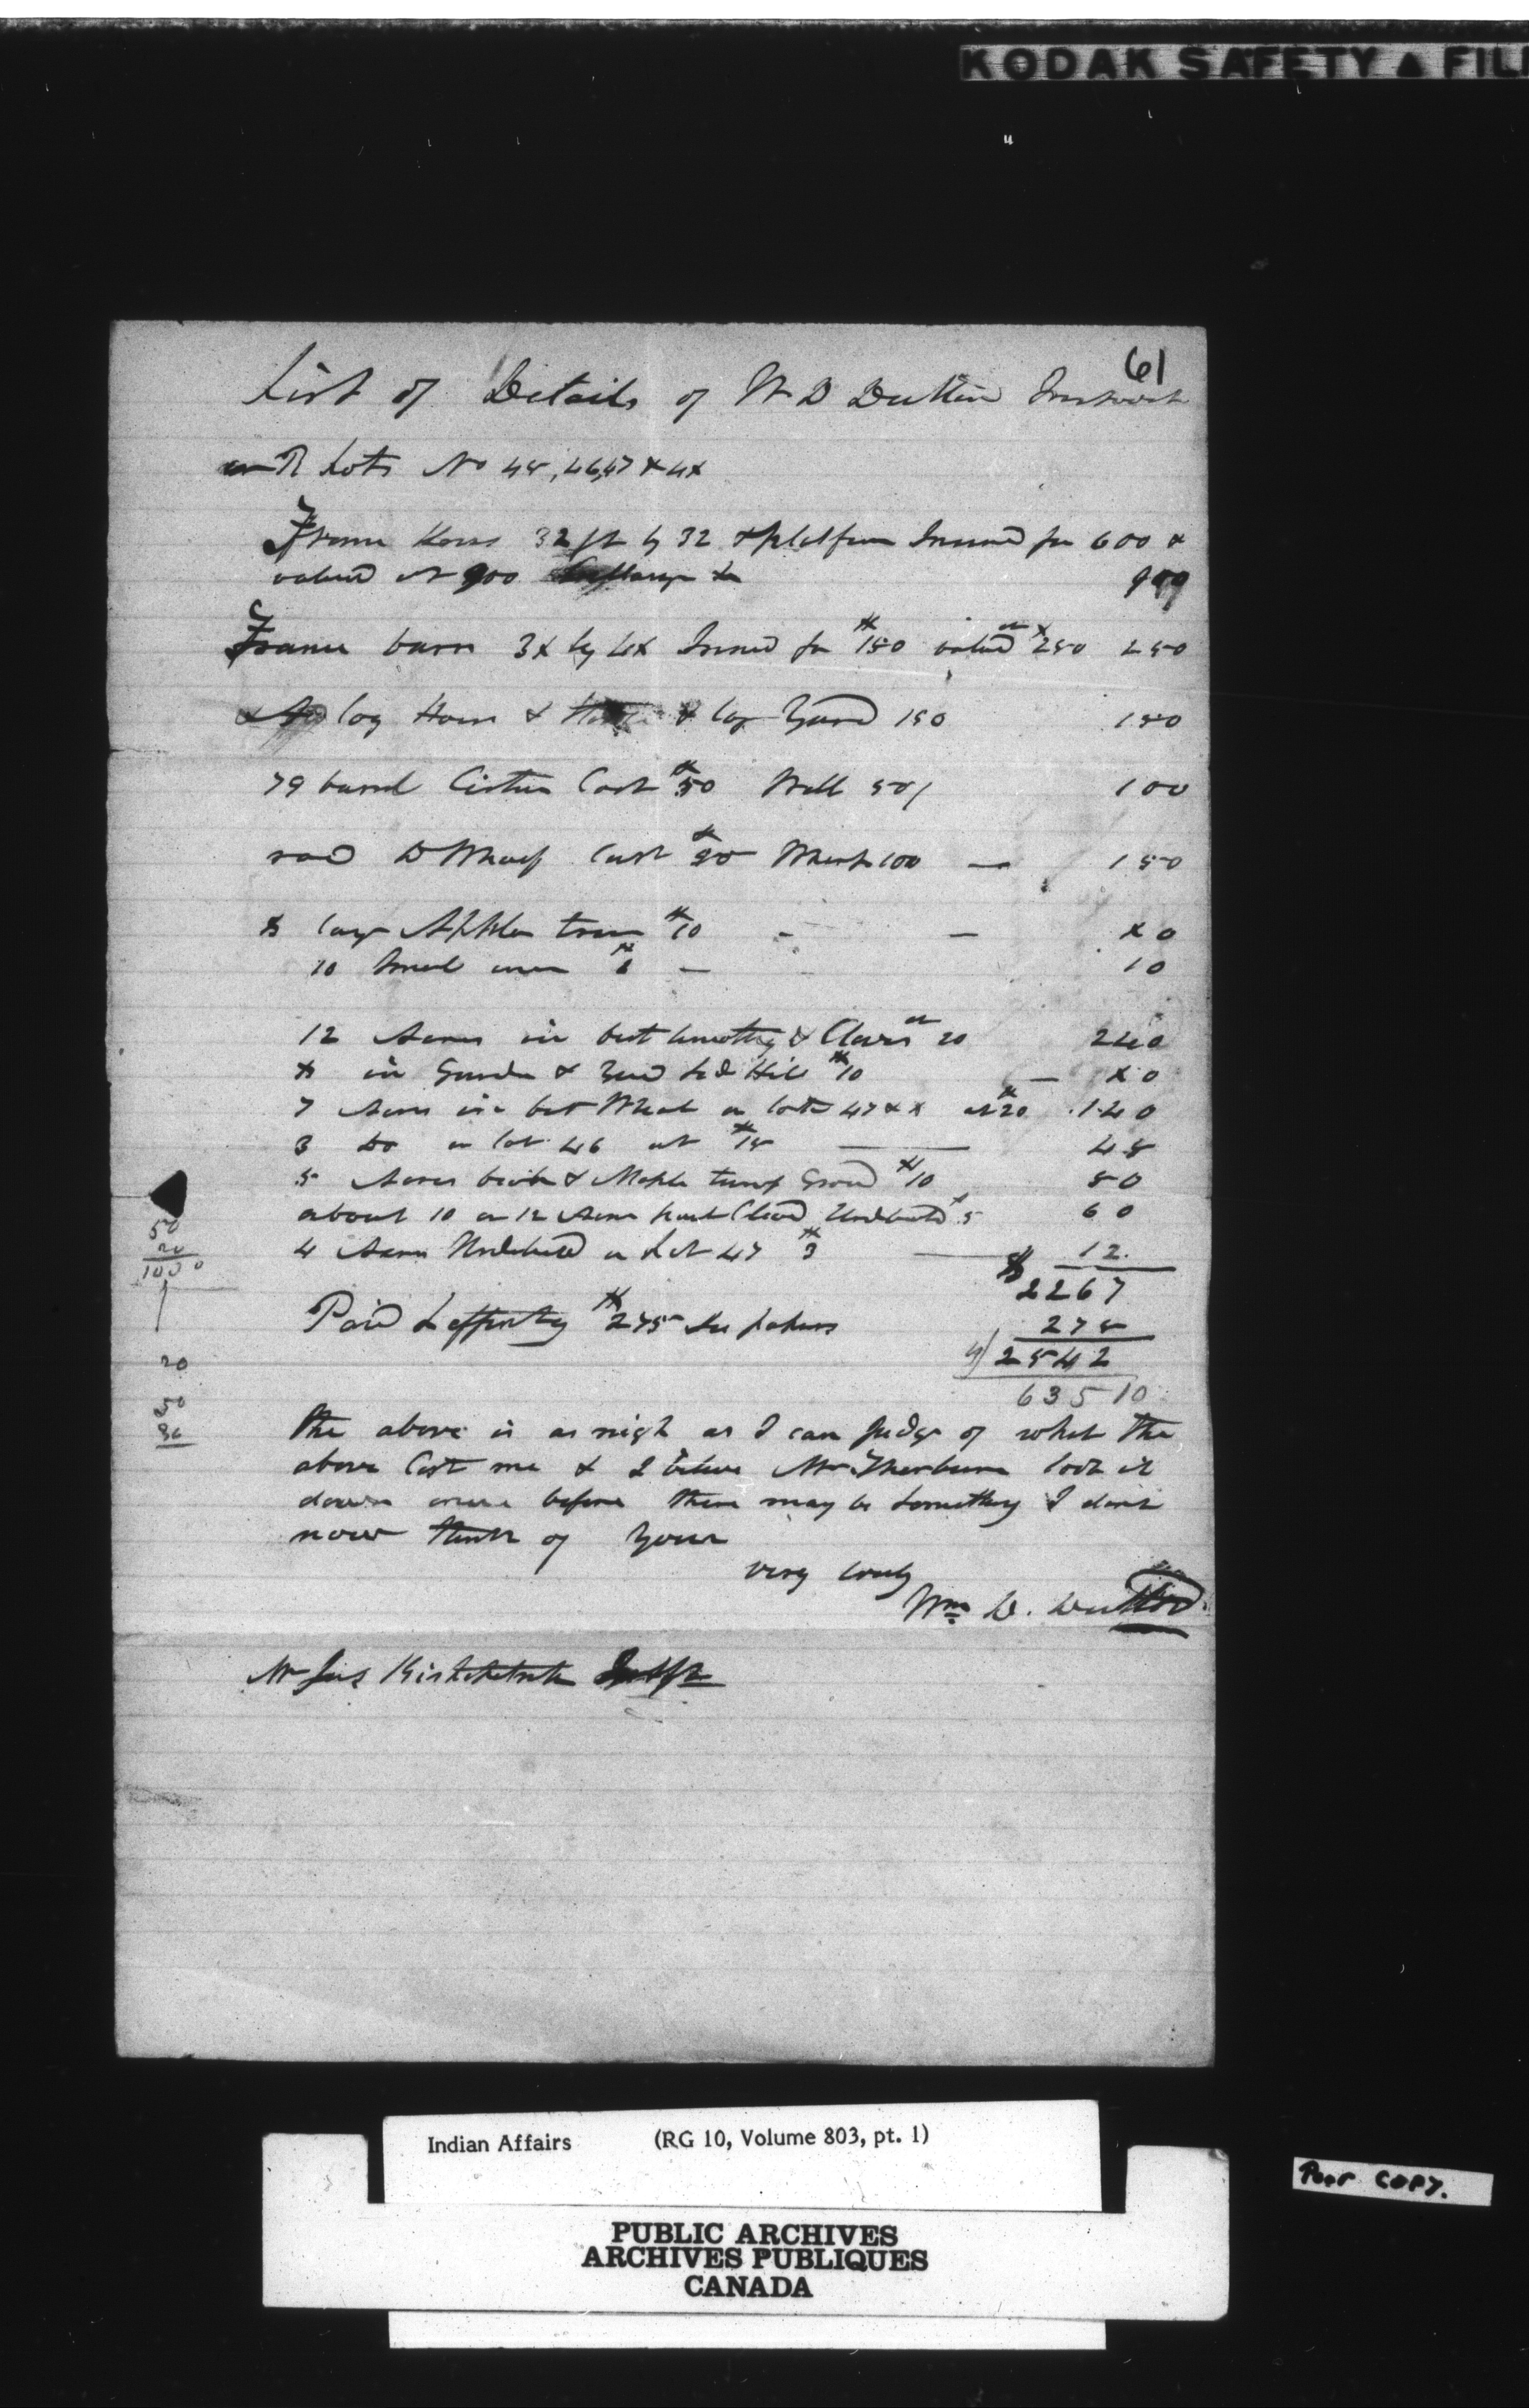 KODAK SAFETY ▲ FIL
61
List of Details of W D Dutton
R Lots No 45, 46, 47 & 48
Frame House 32 ft by 32 & platform Insured for 600 &
valued at 900 900
Frame barn 38 by 48 Insured for $150 valued at $250 250
log House & & log Yard 150 150
79 barrel Cistern Cost $50 Well 50/ 100
road to Wharf Cost $50 Wharf 100 — 150
8 large Apple trees $10 - — 80
10 Small ones $1 — 10
12 Acres in best timothy & Clover at 20 240
8 in Garden & Side Hill $10 — 80
7 Acres in best Wheat on lots 47 & 8 at $20 140
3 Do on lot 46 at $15 — 45
5 Acres birch & Maple turnip Ground $10 50
about 10 or 12 Acres part Cleared Underbrushed $5 60
4 Acres Underbrushed on Lot 47 $3 — 12.
$ 2267
Paid Lefferty $275 See papers 275
4) 2542
635 10
50
20
1000
20
50
the above is as nigh as I can Judge of what the
above Cost me & I believe Mr Thorburn took it
down once before there may be Something I dont
now think of Your
very truly
Wm D. Dutton
Mr Jas Kirkpatrick
Indian Affairs (RG 10, Volume 803, pt. 1)
PUBLIC ARCHIVES
ARCHIVES PUBLIQUES
CANADA
Poor COPY.